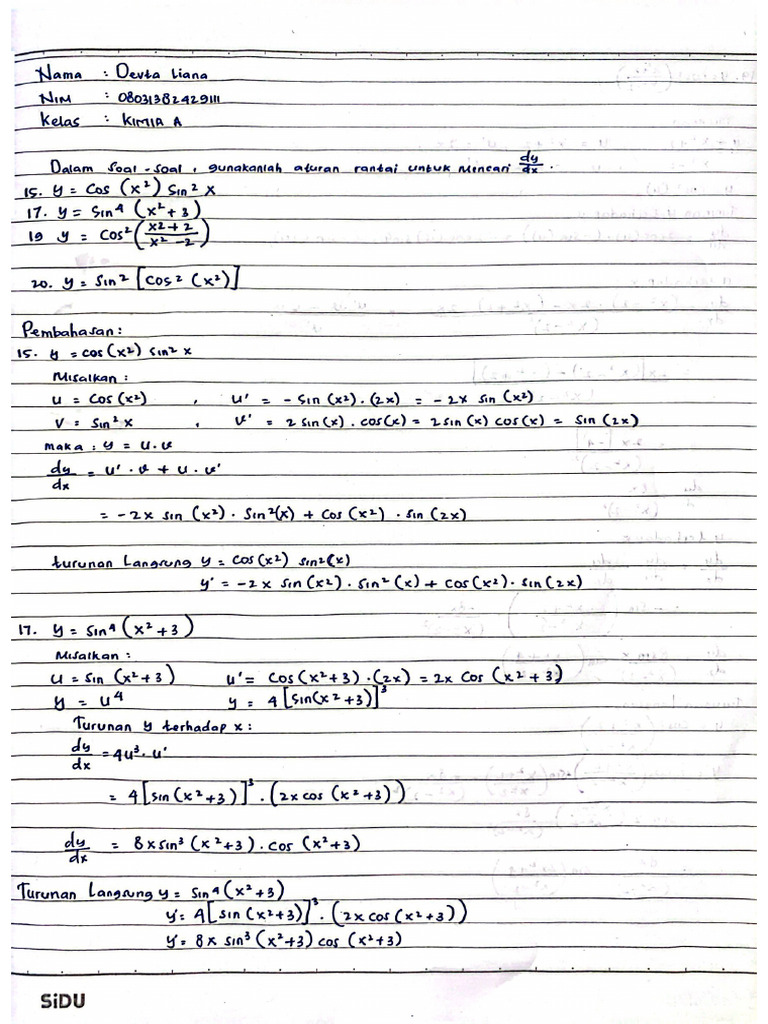 Nama : Devta Liana
NIM : 08031382429111
Kelas : KIMIA A
Dalam soal-soal, gunakanlah aturan rantai untuk mencari dy/dx.
15. y = cos (x²) sin² x
17. y = sin⁴ (x² + 3)
19 y = cos² (x2 + 2 / x² - 2)
20. y = sin² [cos² (x²)]
Pembahasan :
15. y = cos (x²) sin² x
Misalkan :
u = cos (x²) , u' = - sin (x²) . (2x) = -2x sin (x²)
v = sin² x , v' = 2 sin(x) . cos(x) = 2 sin(x) cos(x) = sin (2x)
maka : y = u . v
dy/dx = u' . v + u . v'
= -2x sin (x²) . sin²(x) + cos (x²) . sin (2x)
turunan langsung y = cos (x²) sin2(x)
y' = -2x sin (x²) . sin² (x) + cos(x²) . sin (2x)
17. y = sin⁴ (x² + 3)
Misalkan :
u = sin (x² + 3) u' = cos (x² + 3) . (2x) = 2x cos (x² + 3)
y = u⁴ y = 4 [sin(x² + 3)]³
Turunan y terhadap x :
dy/dx = 4u³ . u'
= 4 [sin (x² + 3)]³ . (2x cos (x² + 3))
dy/dx = 8x sin³ (x² + 3) . cos (x² + 3)
Turunan Langsung y = sin⁴ (x² + 3)
y' = 4 [sin (x² + 3)]³ . (2x cos (x² + 3))
y' = 8x sin³ (x² + 3) cos (x² + 3)
SiDU